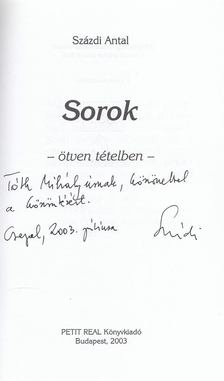 Százdi Antal
Sorok
– ötven tételben –
Tóth Mihály úrnak, köszönettel
a
Csepel, 2003. júliusa
Százdi
PETIT REAL Könyvkiadó
Budapest, 2003